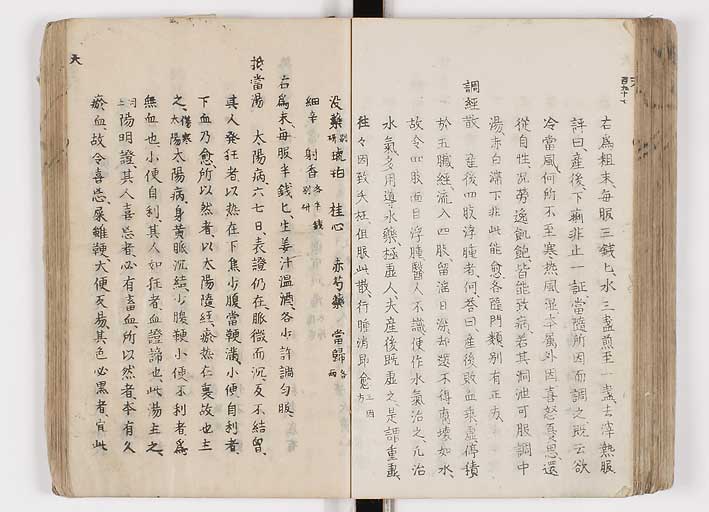 右爲粗末每服三錢匕水三盞煎至一盞去滓熱服
評曰產後下痢非止一証當隨所因而調之既云飲
冷當風何所不至寒熱風濕本屬外因喜怒憂思還
從自性況勞逸飢飽皆能致病若其洞泄可服調中
湯赤白滯下非此能愈各隨門類別有正方
調經散　產後四肢浮腫者何荅曰產後敗血乘虛停積
於五臟經流入四肢留滛日深却還不得腐壞如水
故令四肢面目浮腫醫人不識便作水氣治之凡治
水氣多用導水藥極虛人夫產後既虛又是謂重虛
往々因致夭枉但服此散行腫消即愈三因方
没藥別研琥珀　桂心　赤芍藥　當歸各一兩
細辛　射香各半錢別研
右爲末每服半錢匕生姜汁温酒各少許調勻服
抵當湯　太陽病六七日表證仍在脈微而沉反不結胷
其人發狂者以熱在下焦少腹當鞕滿小便自利者
下血乃愈所以然者以太陽隨経瘀热在裏故也主
之傷寒太陽太陽病身黃脈沉結少腹鞕小便不利者爲
無血也小便自利其人如狂者血證諦也此湯主之
同上陽明證其人喜忘者必有畜血所以然者本有久
瘀血故令喜忘屎雖鞕大便反易其色必黒者宜此
天
百九十七